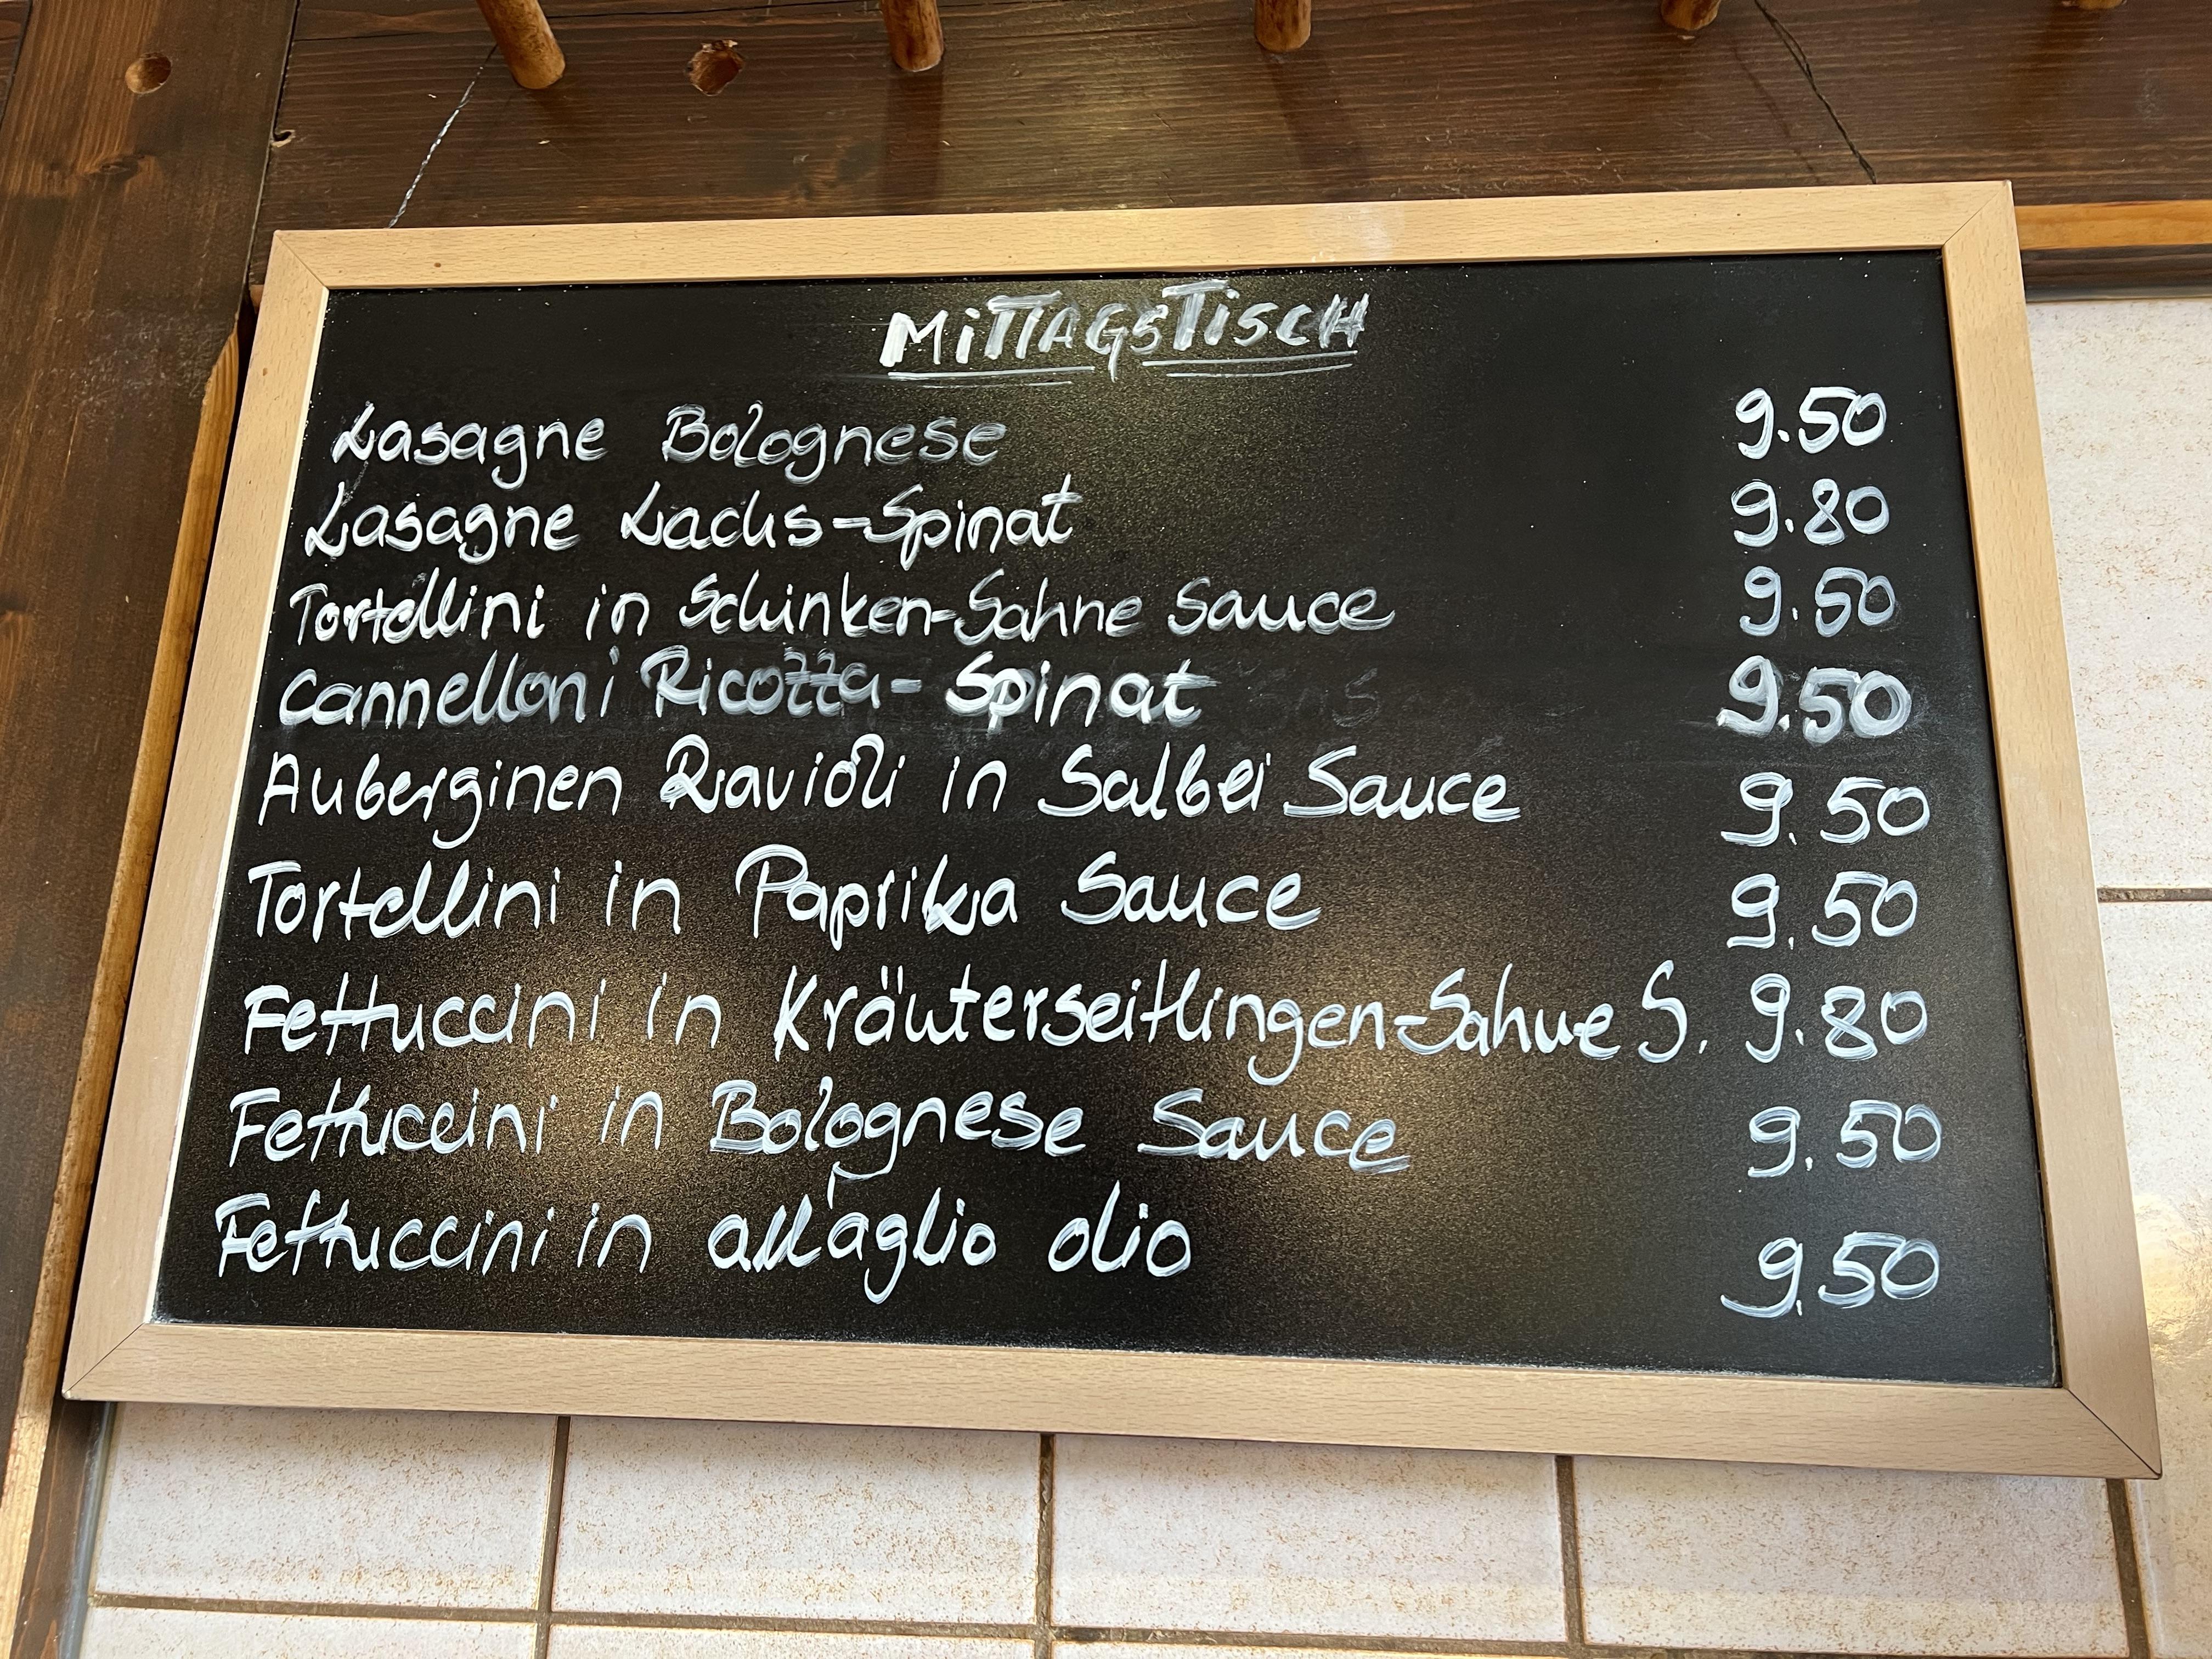 MiTTAGSTiSCH
Lasagne Bolognese 9.50
Lasagne Lachs-Spinat 9.80
Tortellini in Schinken-Sahne Sauce 9.50
Cannelloni Ricotta-Spinat 9.50
Auberginen Ravioli in Salbei Sauce 9.50
Tortellini in Paprika Sauce 9.50
Fettuccini in Kräuterseitlingen-Sahne S. 9.80
Fettuccini in Bolognese Sauce 9.50
Fettuccini in all'aglio olio 9.50